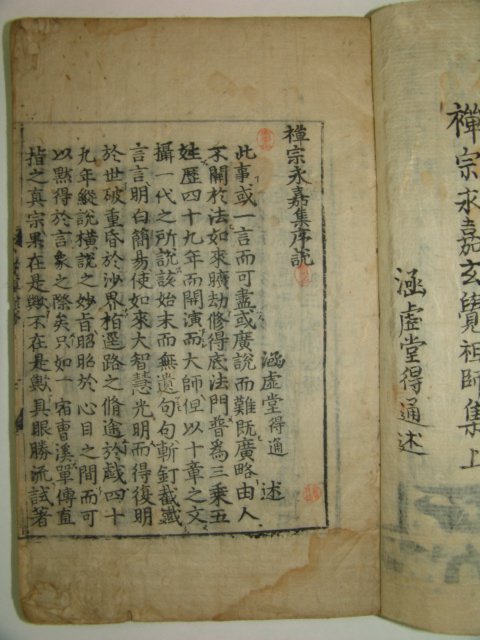 禪宗永嘉玄覺祖師集上
涵虛堂得通述
禪宗永嘉集序說
涵虛堂得通 述
此事或一言而可盡或廣說而難旣廣略由人
不關於法如來曠劫修得底法門普爲三乘五
姓歷四十九年而開演而大師但以十章之文
攝一代之所說該始末而無遺句句斬釘截鐵
言言明白簡易使如來大智慧光明而得復明
於世破重昏於沙界指遐路之脩途於戱四十
九年縱說橫說之妙旨昭昭於心目之間而可
以黙得於言象之際矣只如一宿曹溪單傳直
指之眞宗果在是歟不在是歟具眼勝流試著